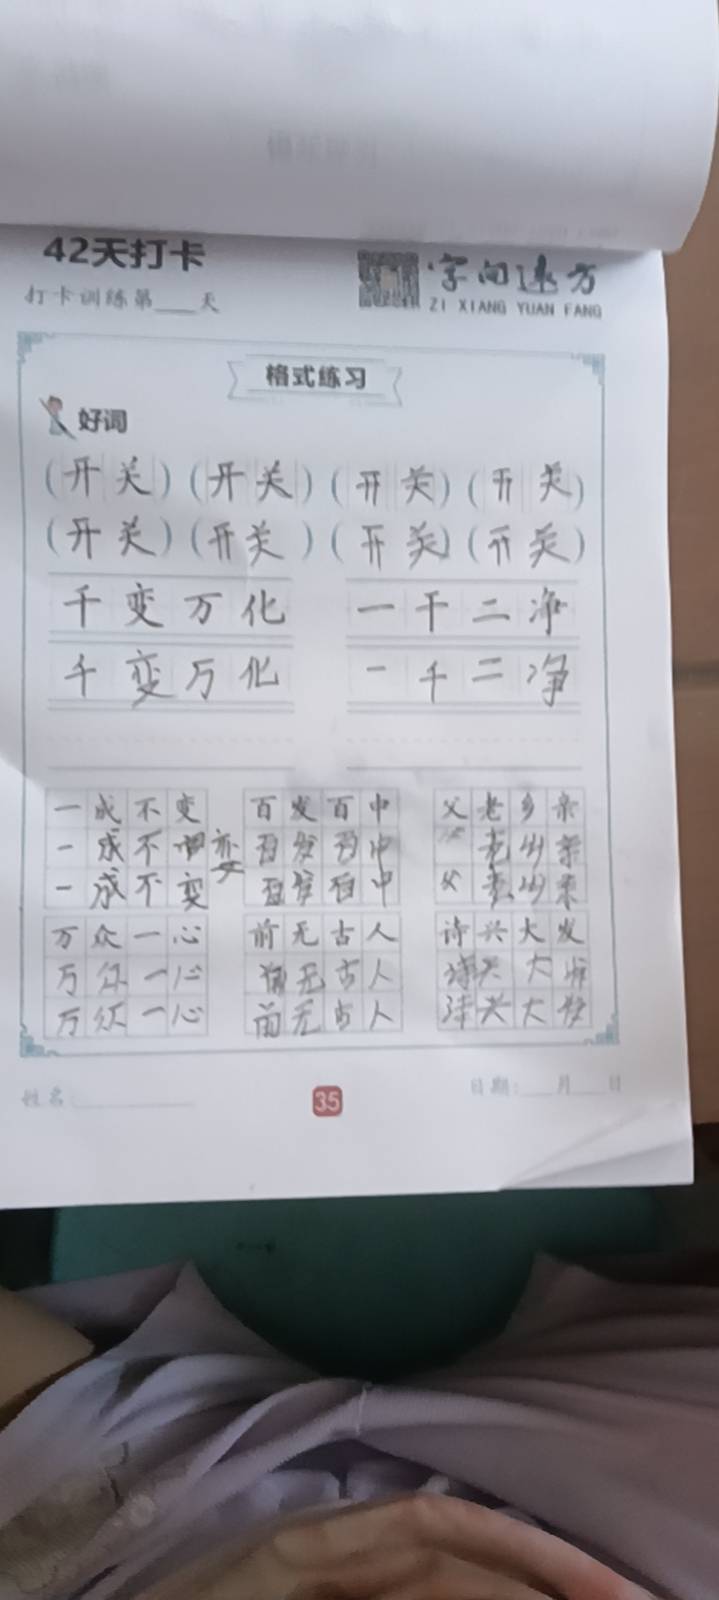 42天打卡
字向远方
打卡训练第___天
ZI XIANG YUAN FANG
格式练习
好词
(开关)(开关)(开关)(开关)
(开关)(开关)(开关)(开关)
千变万化 一干二净
千变万化 一千二净
一成不变 百发百中 父老乡亲
一成不变 百发百中 老乡亲
一成不变 百发百中 父老乡亲
万众一心 前无古人 诗兴大发
万众一心 前无古人 诗兴大发
万众一心 前无古人 诗兴大发
姓名:
35
日期:___月___日